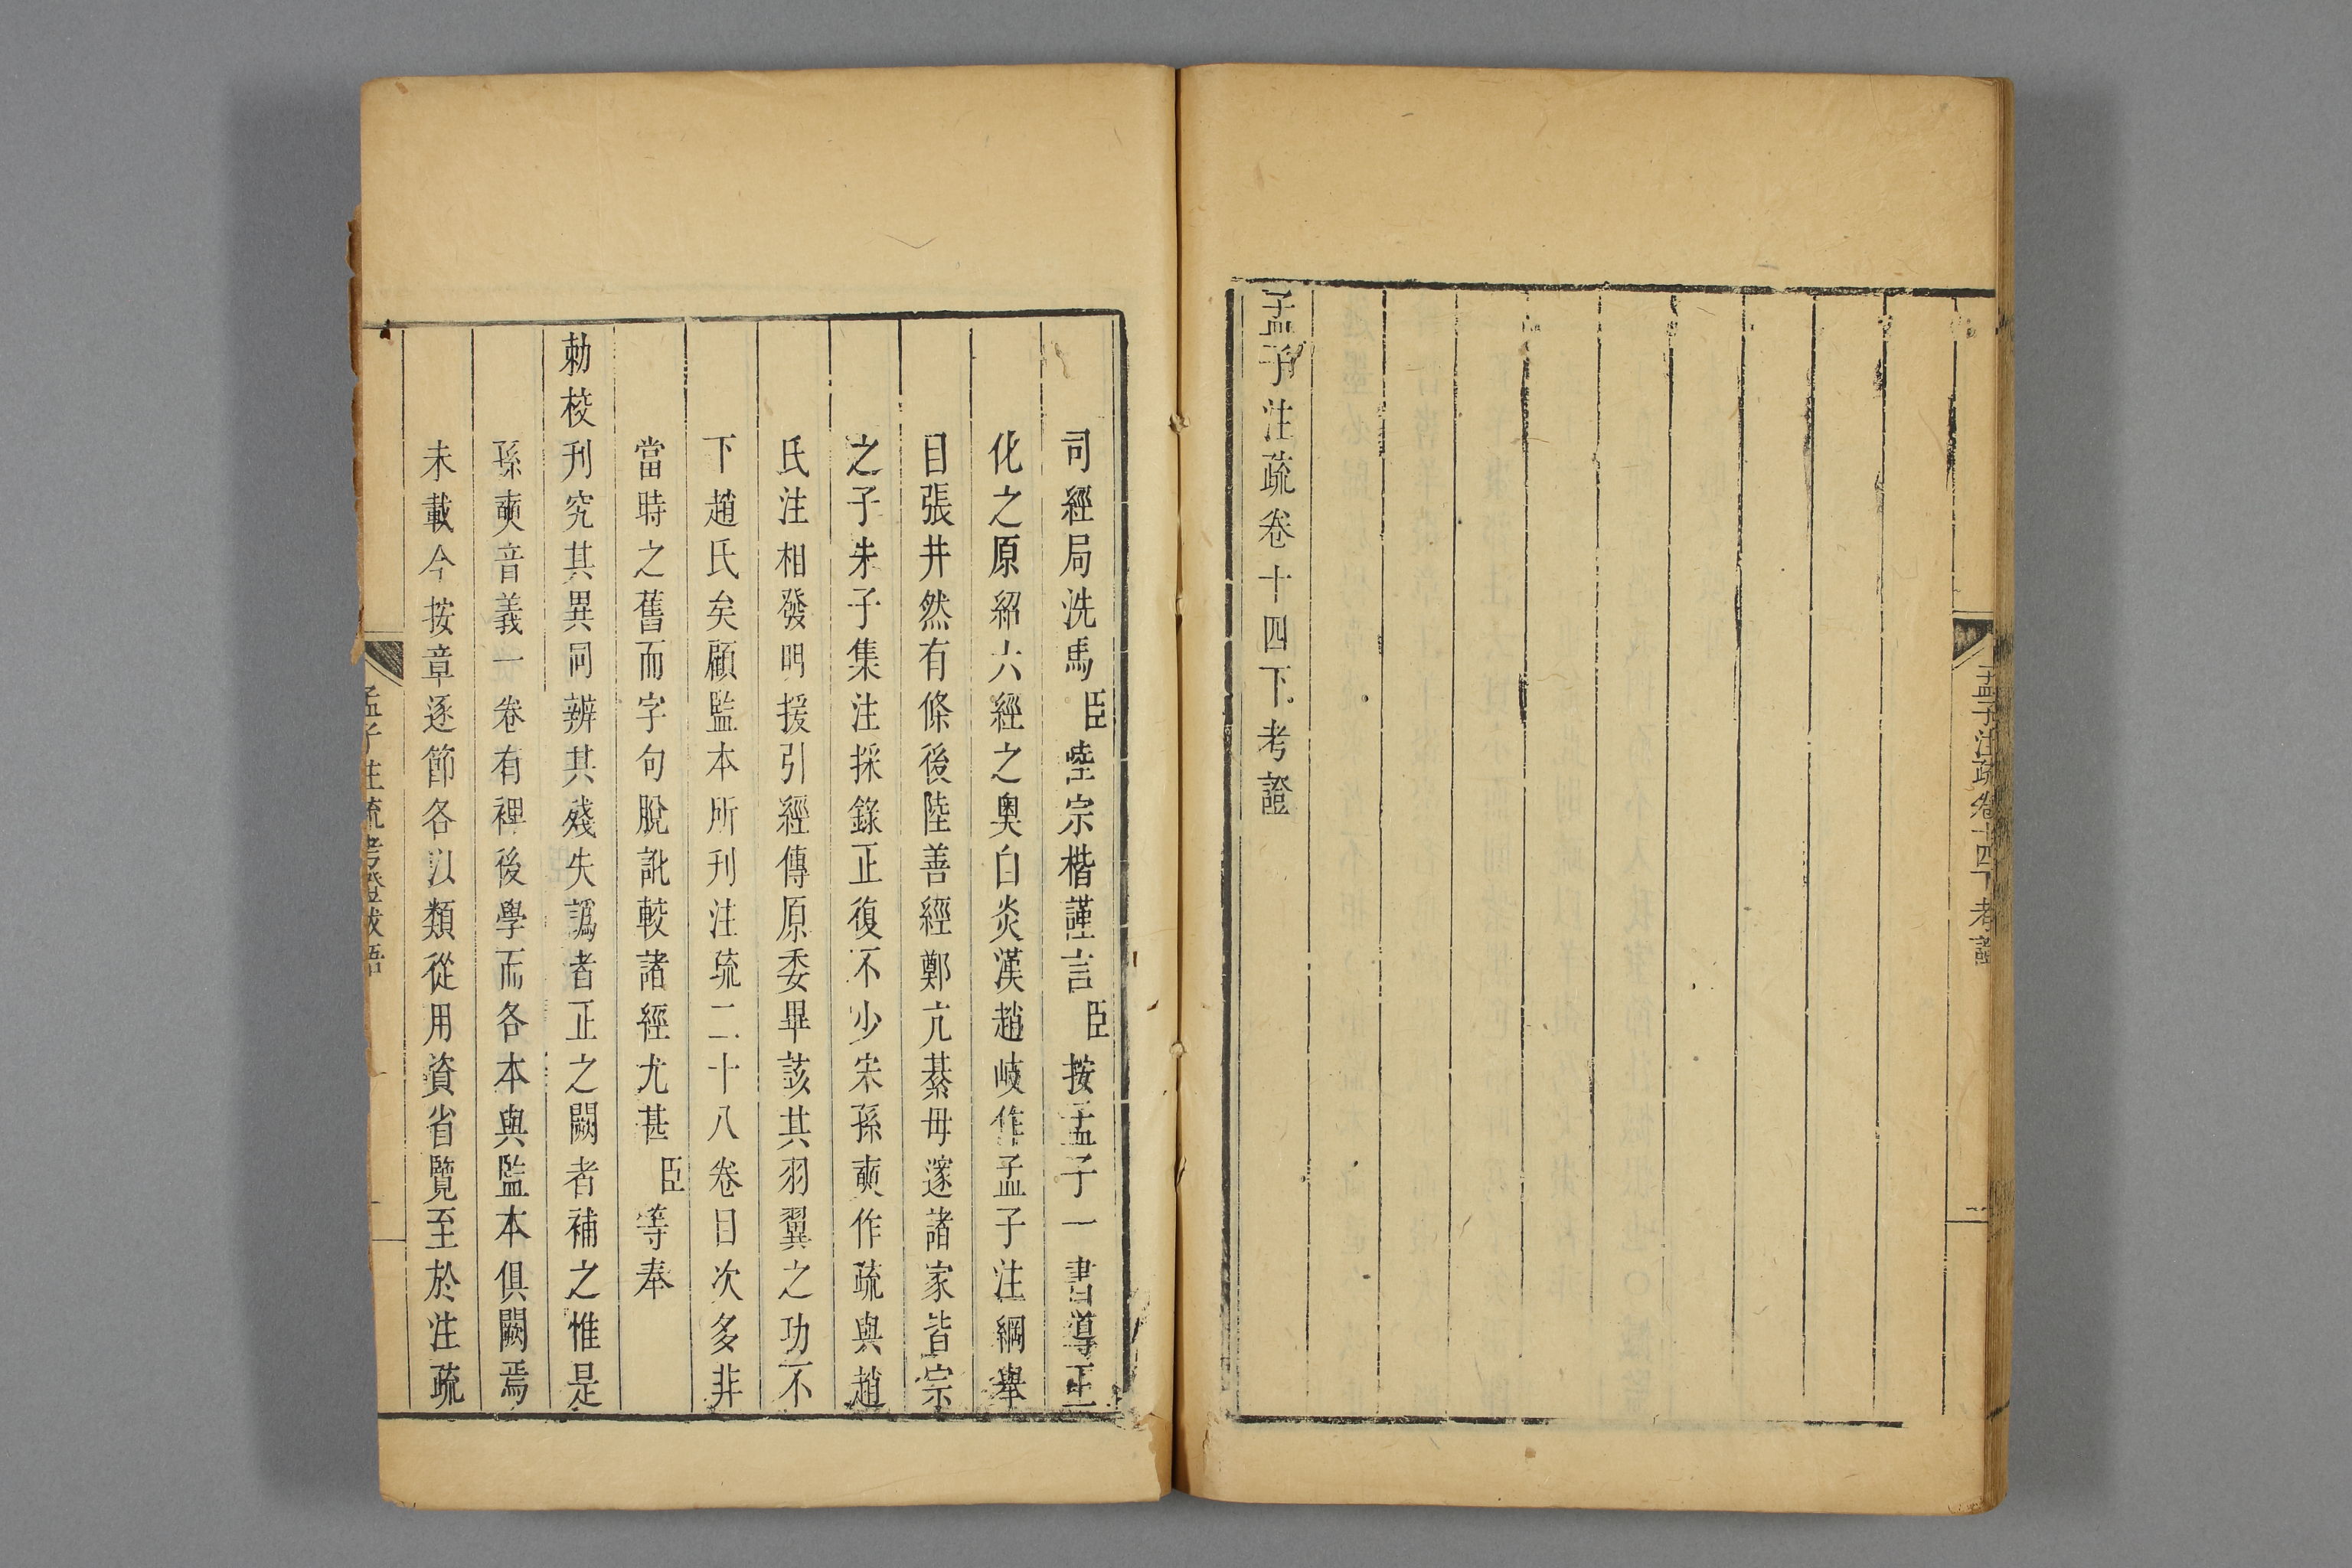 孟子注疏卷十四下考證
孟子注疏卷十四下考證
司經局洗馬臣陸宗楷謹言臣按孟子一書導王
化之原紹六經之奧自炎漢趙岐作孟子注綱舉
目張井然有條後陸善經鄭亢綦毋邃諸家皆宗
之子朱子集注採錄正復不少宋孫奭作疏與趙
氏注相發明援引經傳原委畢該其羽翼之功不
下趙氏矣顧監本所刊注疏二十八卷日次多非
當時之舊而字句脫訛較諸經尤甚臣等奉
勅校刊究其異同辨其殘失譌者正之闕者補之惟是
孫奭音義一卷有裨後學而各本與監本俱闕焉
未載今按章逐節各以類從用資省覽至於注疏
孟子注疏考證跋語